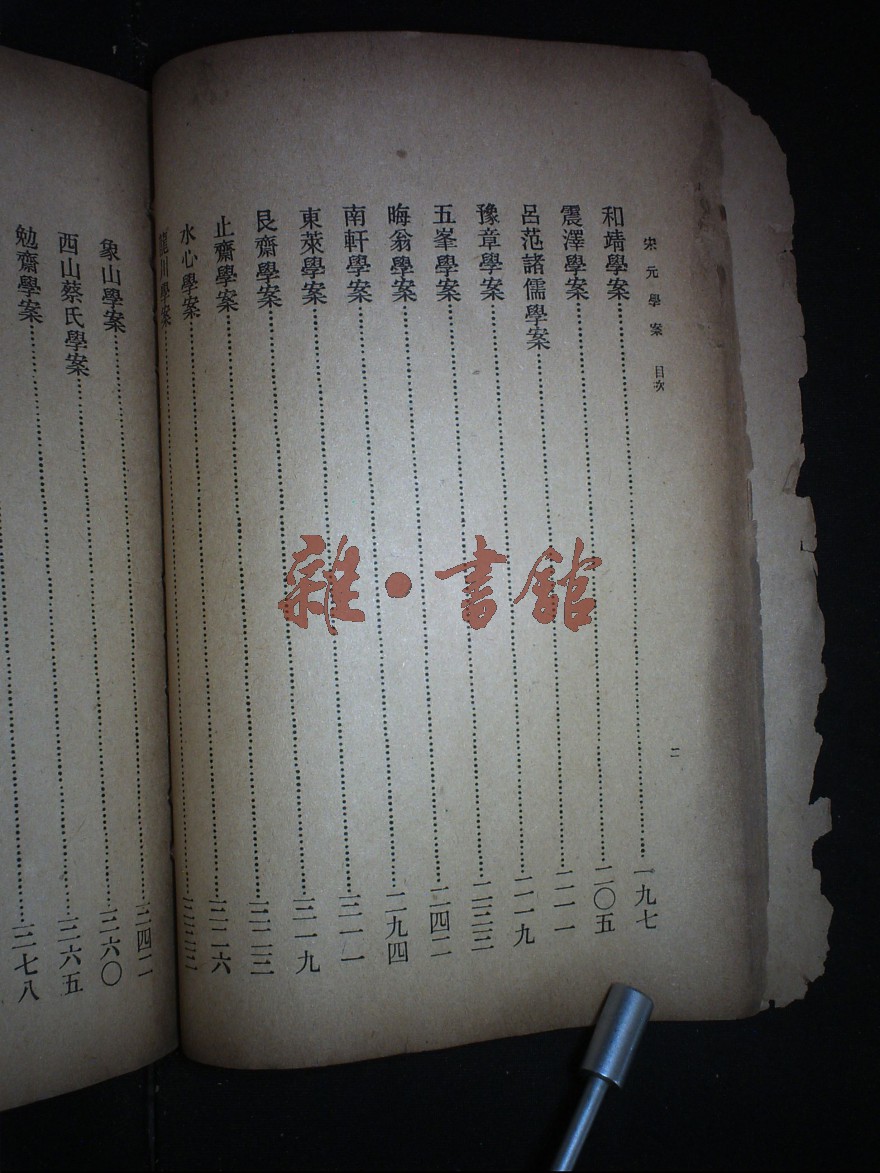 宋元學案 目次 二
和靖學案……一九七
震澤學案……二〇五
呂范諸儒學案……二一一
豫章學案……二一九
五峯學案……二三三
晦翁學案……二四二
南軒學案……二九四
東萊學案……三一一
艮齋學案……三一九
止齋學案……三二三
水心學案……三二六
龍川學案……三三三
象山學案……三四二
西山蔡氏學案……三六〇
勉齋學案……三六五
三七八
雜·書館